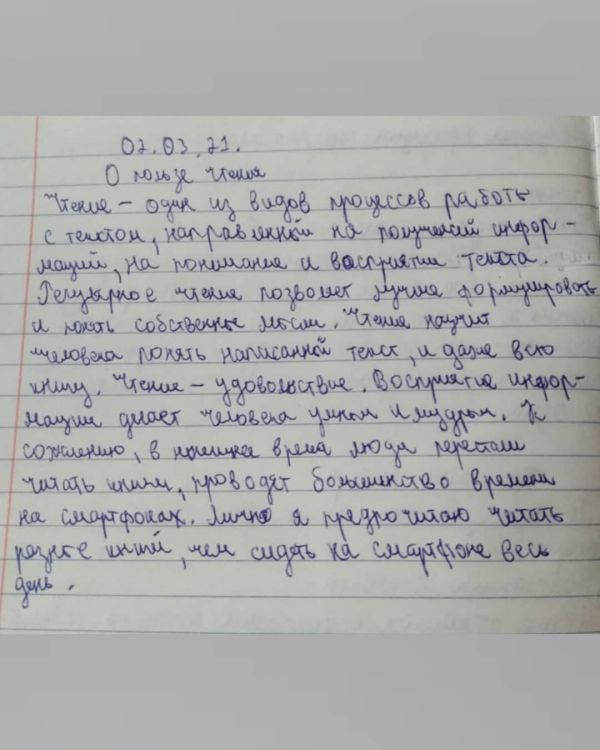 02.03.21.
О пользе чтения
Чтение – один из видов процессов работы
с текстом, направленный на получений инфор-
маций, на понимание и восприятия текста.
Регулярное чтение позволяет лучше формулировать
и понять собственные мысли. Чтение научит
человека понять написанный текст, и даже всю
книгу. Чтение – удовольствие. Восприятие инфор-
мации делает человека умным и мудрым. К
сожалению, в нынешнее время люди перестали
читать книги, проводят большинство времени
на смартфонах. Лично я предпочитаю читать
разные книги, чем сидеть на смартфоне весь
день.